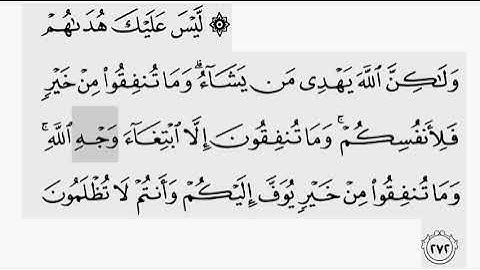 ۞ لَّيْسَ عَلَيْكَ هُدَىٰهُمْ
وَلَـٰكِنَّ ٱللَّهَ يَهْدِى مَن يَشَآءُ ۗ وَمَا تُنفِقُوا۟ مِنْ خَيْرٍ
فَلِأَنفُسِكُمْ ۚ وَمَا تُنفِقُونَ إِلَّا ٱبْتِغَآءَ وَجْهِ ٱللَّهِ ۚ
وَمَا تُنفِقُوا۟ مِنْ خَيْرٍ يُوَفَّ إِلَيْكُمْ وَأَنتُمْ لَا تُظْلَمُونَ
٢٧٢